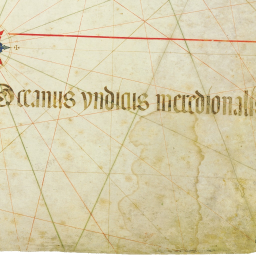 Occanus yndicus meredionalis